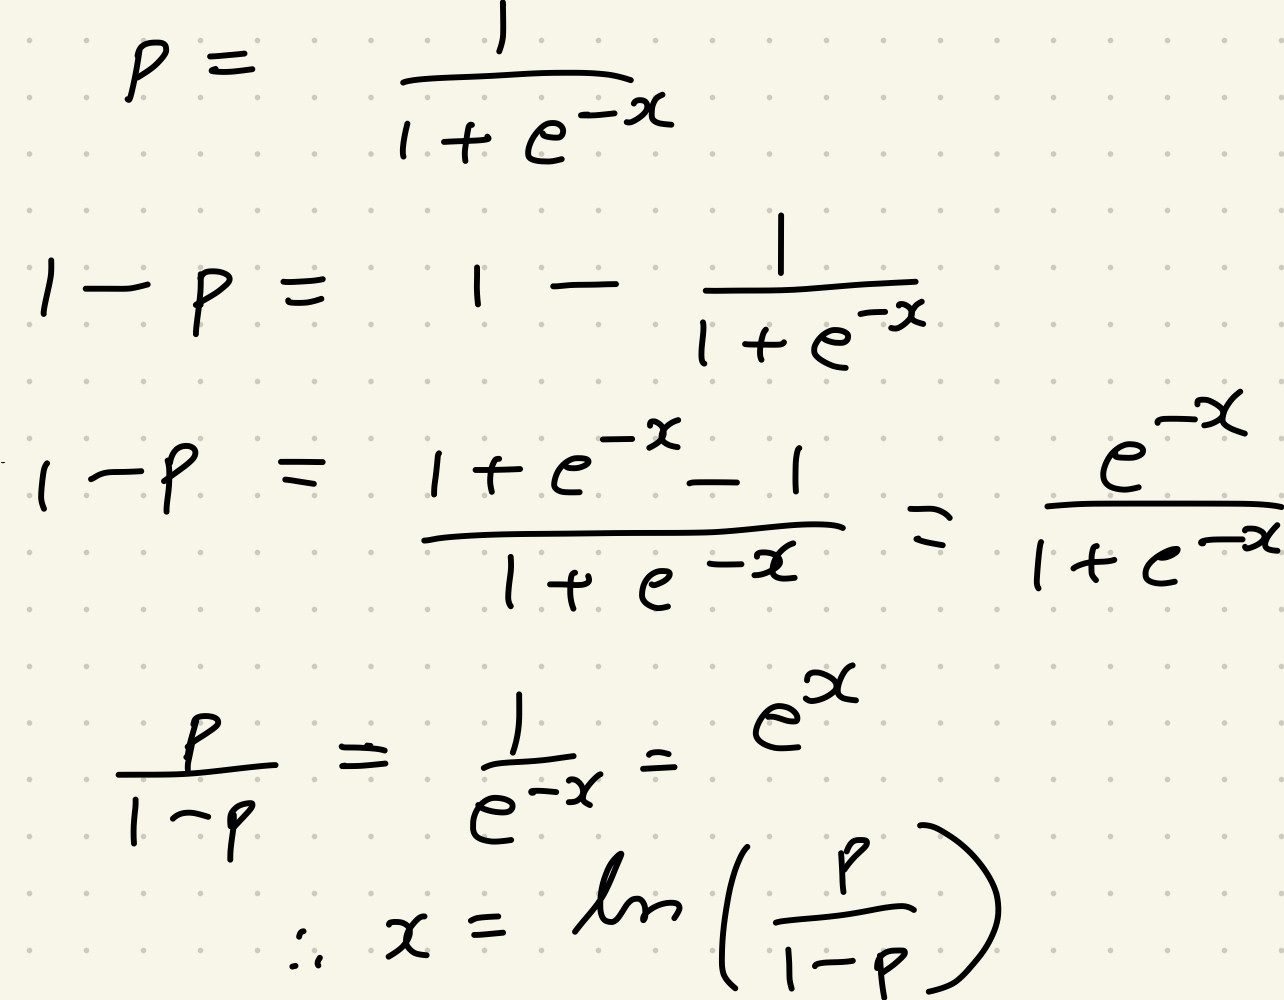 p = 1 / (1 + e^{-x})
1 - p = 1 - 1 / (1 + e^{-x})
1 - p = (1 + e^{-x} - 1) / (1 + e^{-x}) = e^{-x} / (1 + e^{-x})
p / (1 - p) = 1 / e^{-x} = e^{x}
∴ x = ln (p / (1 - p))